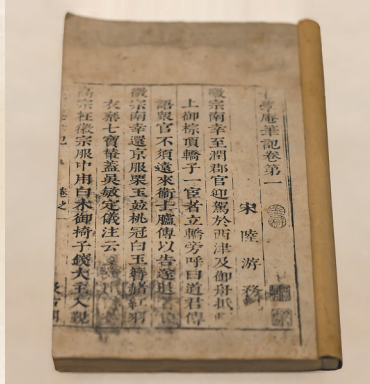 學庵筆記卷第一
宋 陸 游 務
徽宗南幸至潤郡官迎駕於西津及御舟抵
上御棕頂轎子一宦者立轎旁呼曰道君傳
語眾官不須遠來衛士臚傳以告遂退
徽宗南幸還京服栗玉並桃冠白玉簪赭紅羽
衣乘七寶輦蓋吳敏定儀注云
高宗在徽宗服中用白木御椅子錢大主入覲
記 卷之